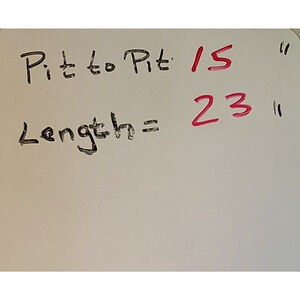 Pit to Pit 15 "
Length = 23 "